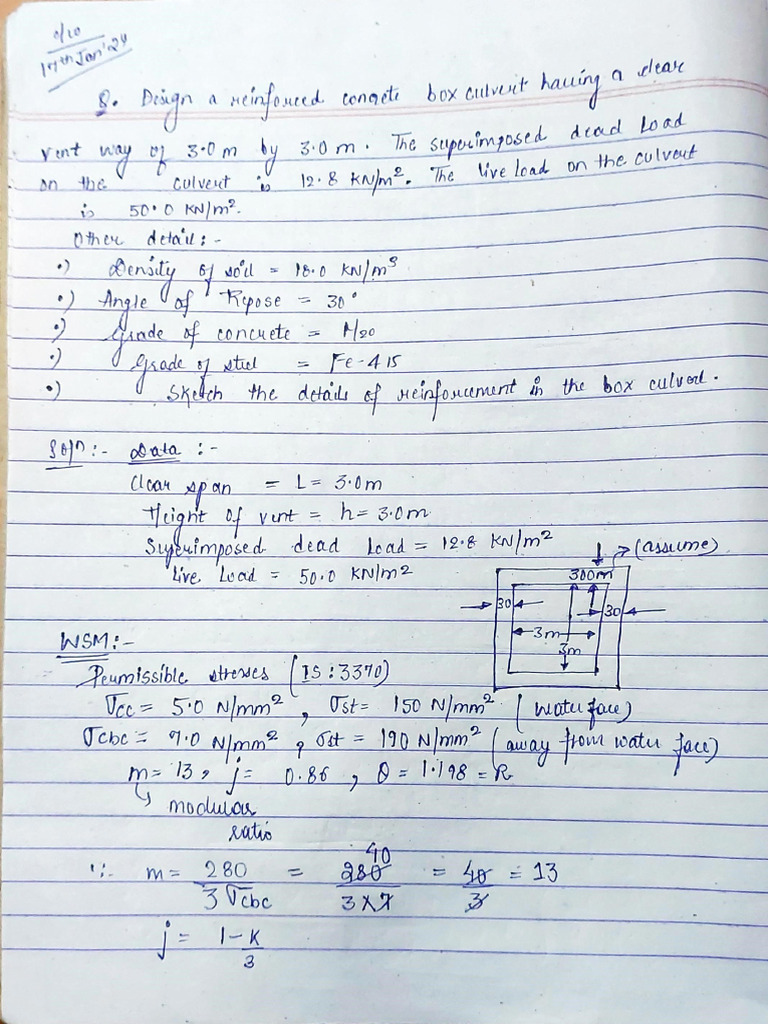 17th Jan'24
Q. Design a reinforced concrete box culvert having a clear
vent way of 3.0 m by 3.0 m. The superimposed dead Load
on the culvert is 12.8 KN/m². The live Load on the culvert
is 50.0 KN/m².
Other detail:-
•) Density of soil = 18.0 KN/m³
•) Angle of Repose = 30°
•) Grade of concrete = M20
•) Grade of steel = Fe-415
•) Sketch the details of reinforcement in the box culvert.
Sol^n:- Data :-
Clear span = L = 3.0m
Height of vent = h = 3.0m
Superimposed dead Load = 12.8 KN/m²
Live Load = 50.0 KN/m²
(assume)
300m
30
30
3m
3m
WSM:-
Permissible stresses (IS:3370)
σcc = 5.0 N/mm², σst = 150 N/mm² (water face)
σcbc = 7.0 N/mm², σst = 190 N/mm² (away from water face)
m = 13, j = 0.86, Q = 1.198 = R
modular
ratio
∵:- m = 280/3σcbc = 280/3×7 = 40/3 = 13
40
j = 1-K/3